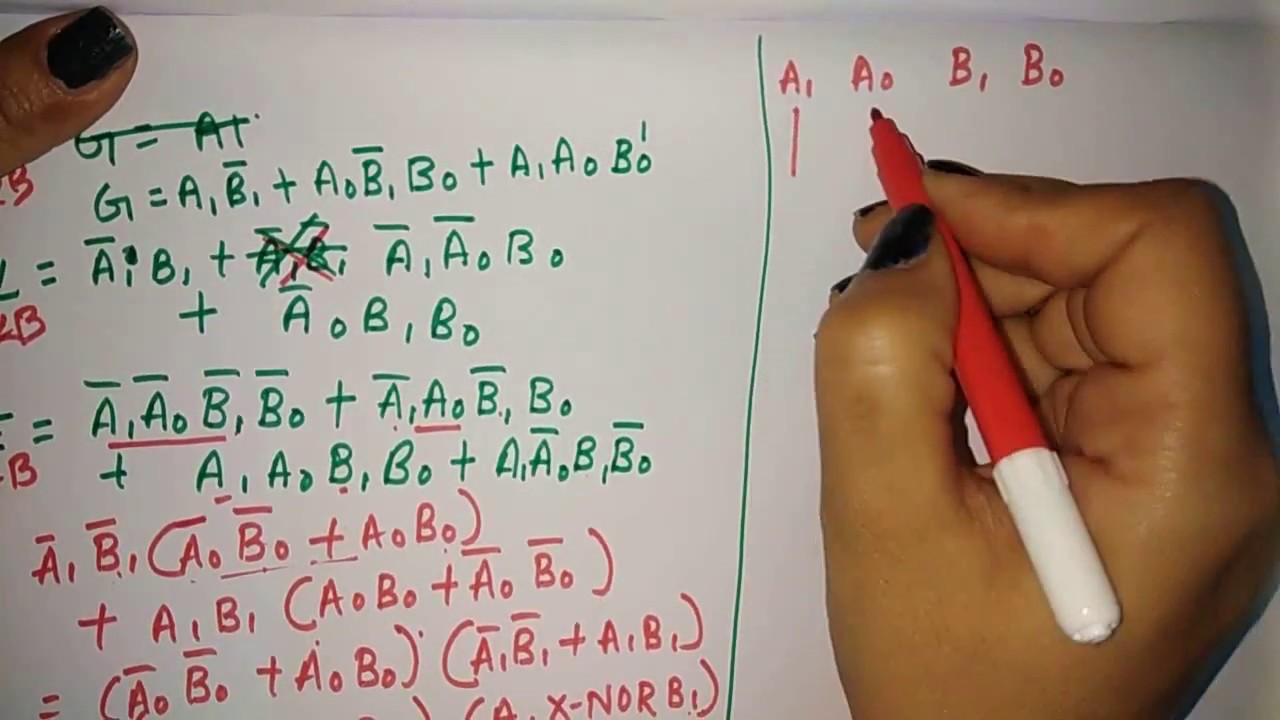 G = A+
G = A₁B̅₁ + A₀B̅₁B₀ + A₁A₀B₀'
>B
L = A̅₁B₁ + A̅₁A̅₀B₀
<B + A̅₀B₁B₀
= A̅₁A̅₀B̅₁B̅₀ + A̅₁A₀B̅₁B₀
=B + A₁A₀B₁B₀ + A₁A̅₀B₁B̅₀
A̅₁B̅₁(A̅₀B̅₀ + A₀B₀)
+ A₁B₁(A₀B₀ + A̅₀B̅₀)
= (A̅₀B̅₀ + A₀B₀)(A̅₁B̅₁ + A₁B₁)
) (A₁ X-NOR B₁)
A₁ A₀ B₁ B₀